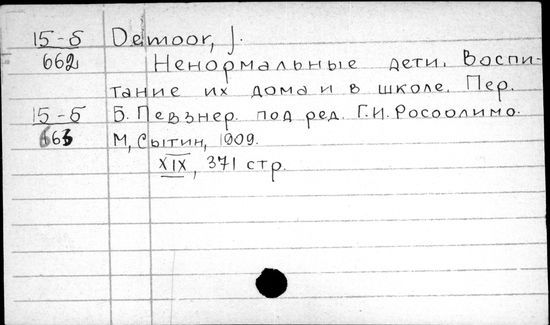 15-б Demoor, J.
662 Ненормальные дети. Воспи-
тание их дома и в школе. Пер.
15-б Б. Певзнер. под ред. Г.И. Росоолимо.
663 М, Сытин, 1909.
XIX, 371 стр.